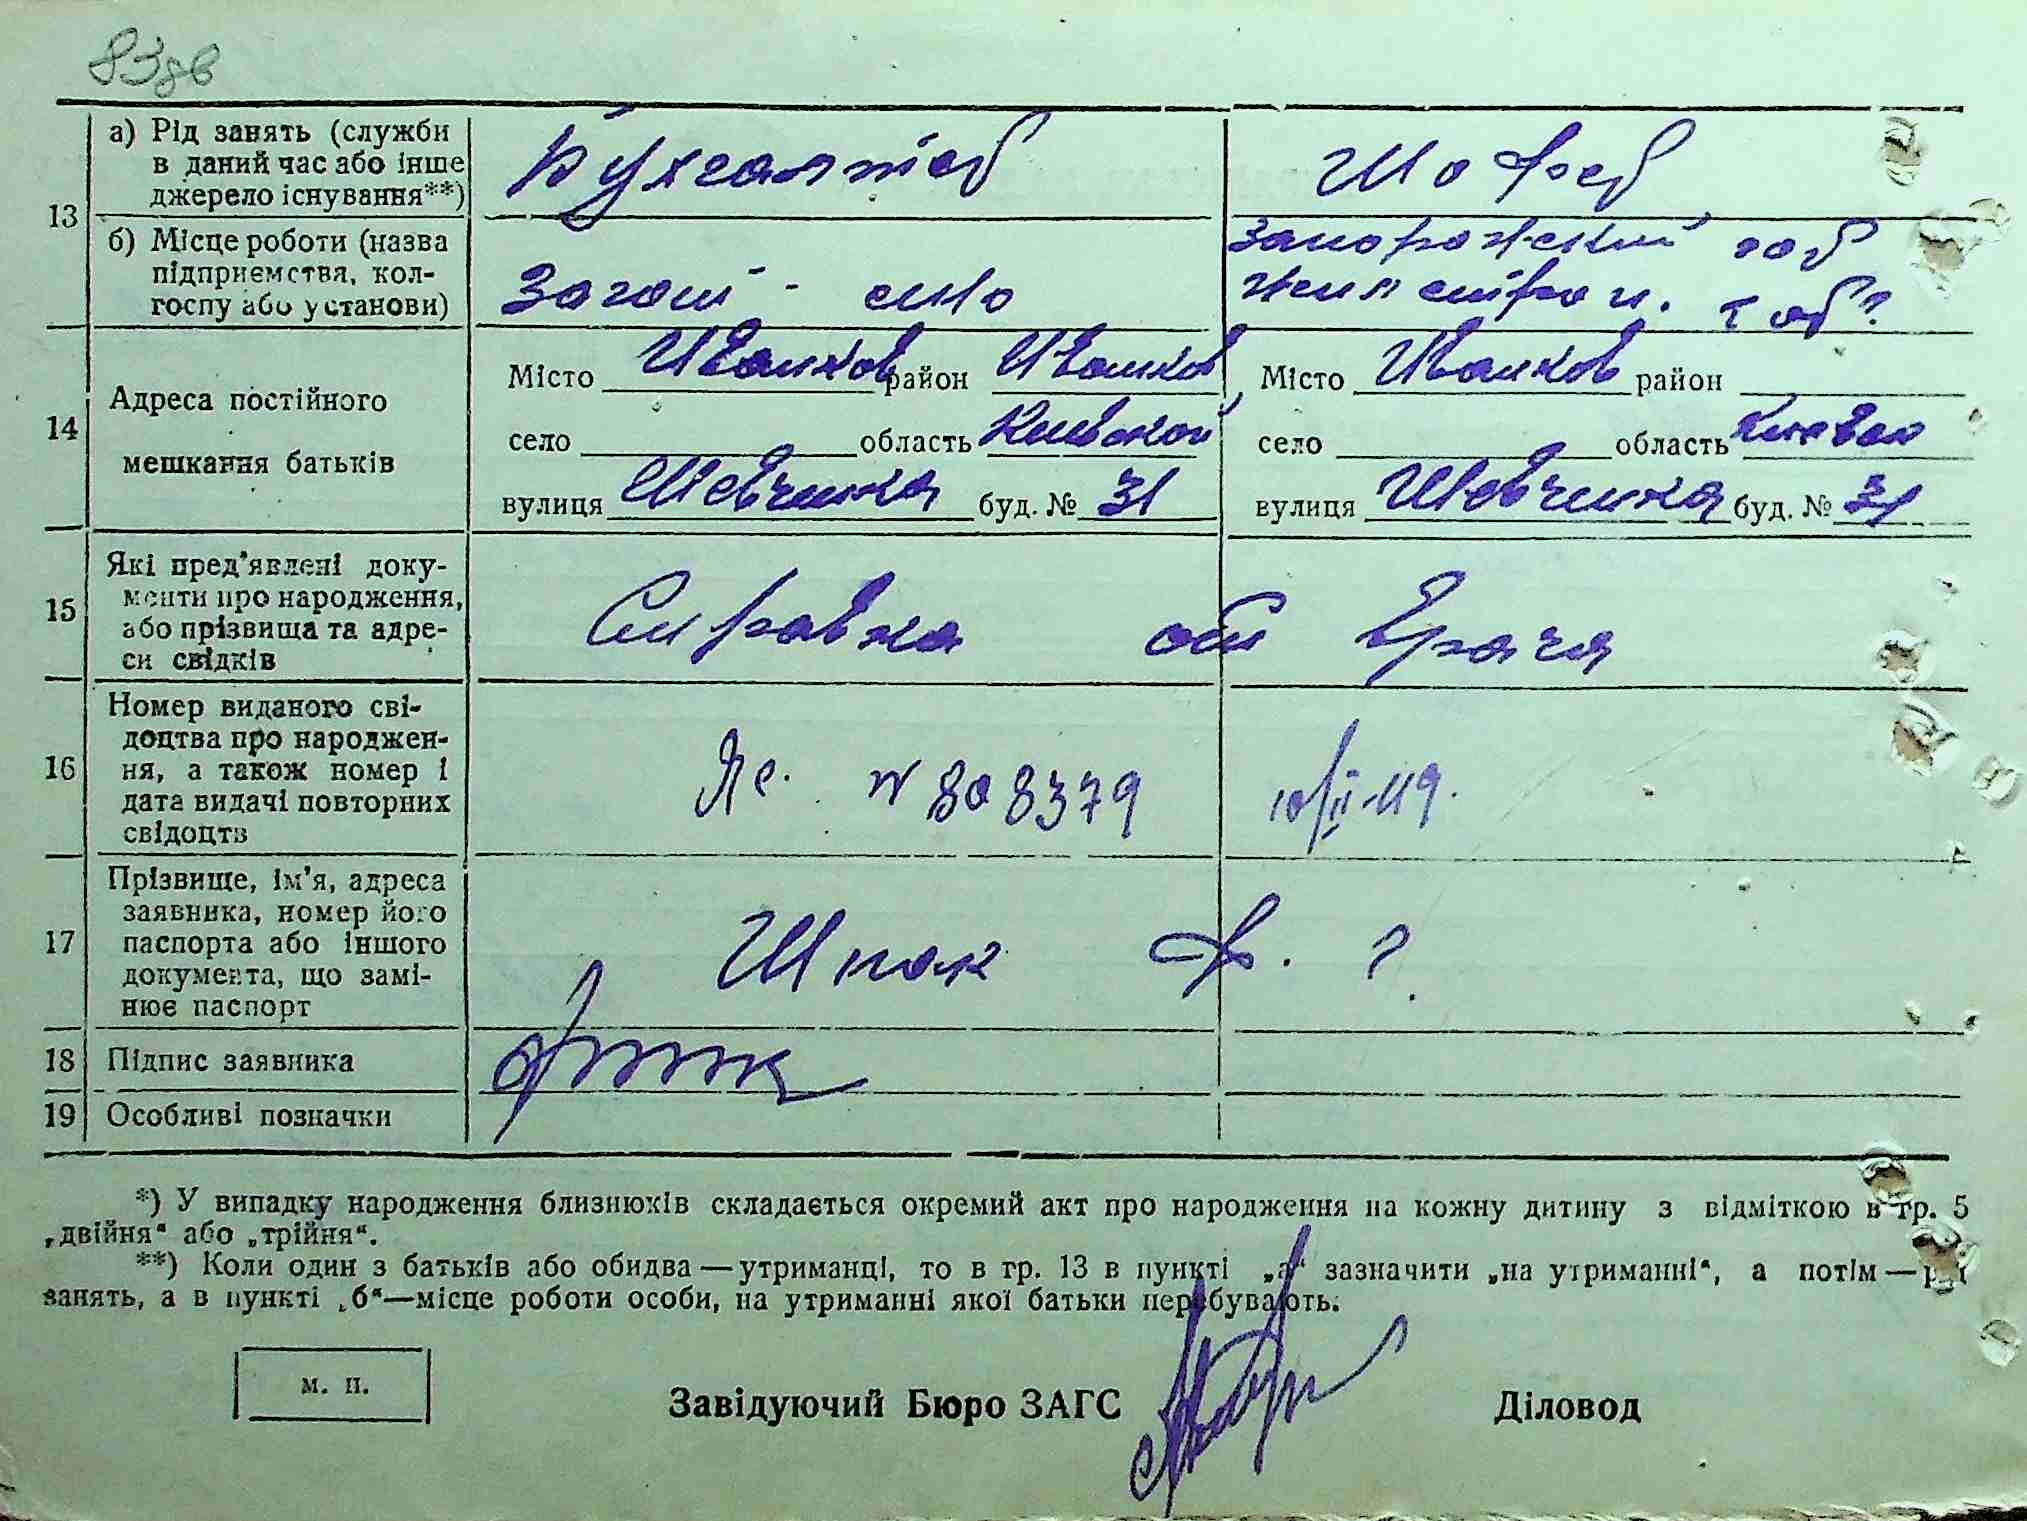 83зв
13
а) Рід занять (служби
в даний час або інше
джерело існування**)
Бухгалтер
Шофер
б) Місце роботи (назва
підприємства, кол-
госпу або установи)
Загот - сіно
14
Адреса постійного
мешкання батьків
Місто Иванков район Иванков
село область Киевской
вулиця Шевченка буд. № 31
Місто Иванков район
село область Киевск
вулиця Шевченка буд. № 31
15
Які пред'явлені доку-
менти про народження,
або прізвища та адре-
си свідків
Справка от Врача
16
Номер виданого сві-
доцтва про народжен-
ня, а також номер і
дата видачі повторних
свідоцтв
N 808379
10/II-49.
17
Прізвище, ім'я, адреса
заявника, номер його
паспорта або іншого
документа, що замі-
нює паспорт
Шпак Ф. ?
18 Підпис заявника
19 Особливі позначки
*) У випадку народження близнюків складається окремий акт про народження на кожну дитину з відміткою в гр. 5
„двійня" або „трійня".
**) Коли один з батьків або обидва — утриманці, то в гр. 13 в пункті „а" зазначити „на утриманні", а потім — рід
занять, а в пункті „б"—місце роботи особи, на утриманні якої батьки перебувають.
м. п.
Завідуючий Бюро ЗАГС
Діловод